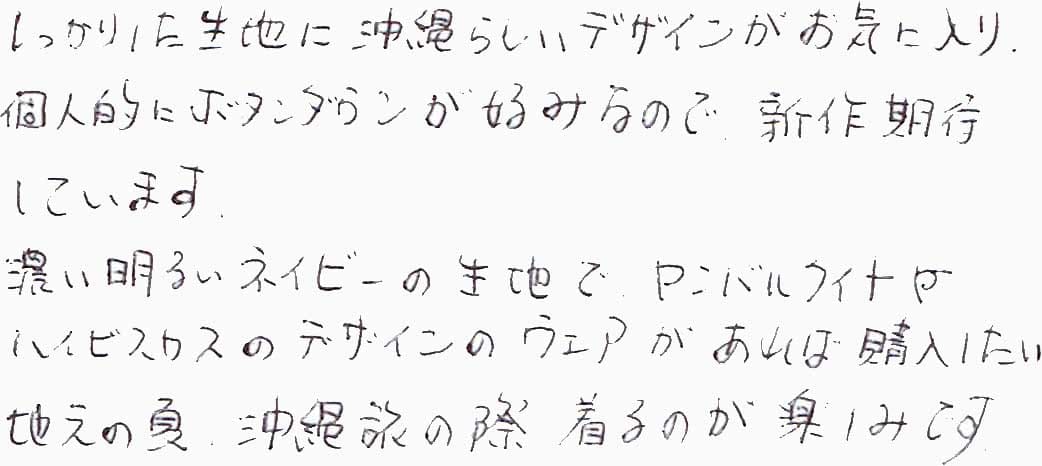 しっかりした生地に沖縄らしいデザインがお気に入り.
個人的にボタンダウンが好みなので.新作期待
しています.
濃い明るいネイビーの生地で.ヤンバルクイナや
ハイビスカスのデザインのウェアがあれば購入したい
地元の夏.沖縄旅の際 着るのが楽しみです